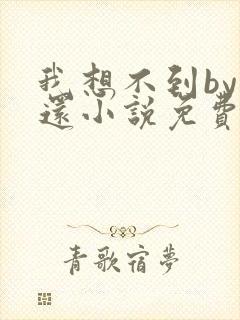 我想不到by
還小説免費
青歌宿夢